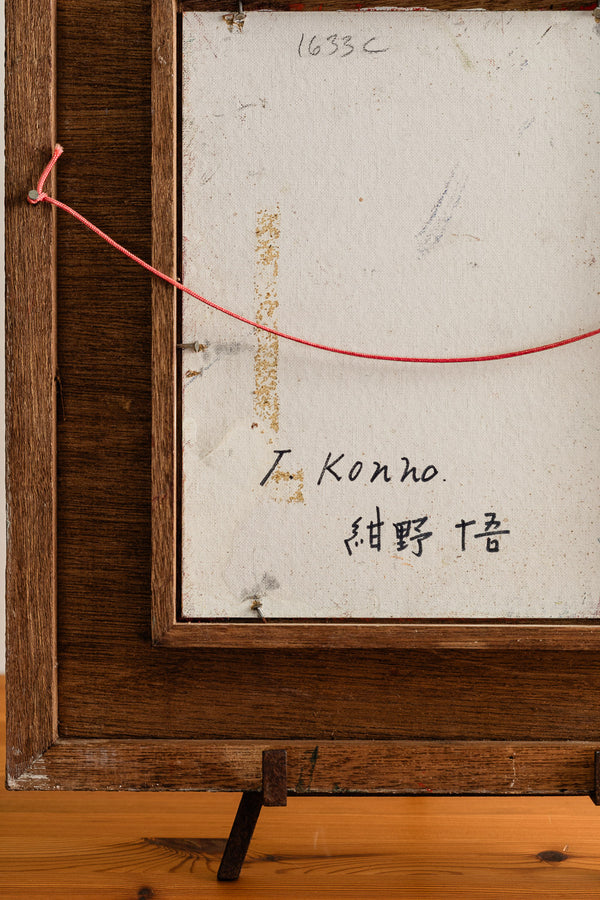 1633C
T. Konno.
紺野 悟